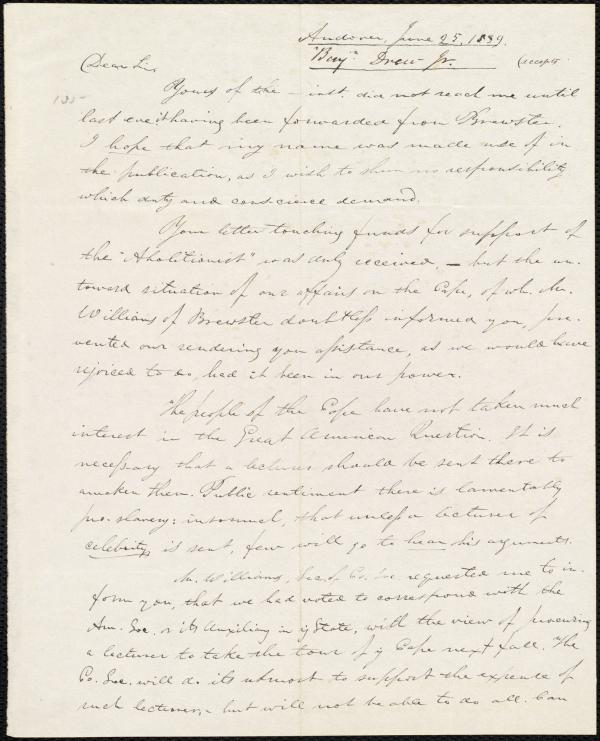 Andover, June 25, 1839.
"Benj." Drew Jr. (accepts
Dear Sir,
Yours of the — inst. did not reach me until
last eve. it having been forwarded from Brewster.
I hope that my name was made use of in
the publication, as I wish to shun no responsibility
which duty and conscience demand.
Your letter touching funds for support of
the "Abolitionist" was duly received, — but the un-
toward situation of our affairs on the Cape, of wh. Mr.
Williams of Brewster doubtless informed you, pre-
vented our rendering you assistance, as we would have
rejoiced to do, had it been in our power.
The people of the Cape have not taken much
interest in the Great American Question. It is
necessary that a lecturer should be sent there to
awaken them. Public sentiment there is lamentably
pro-slavery; insomuch, that unless a lecturer of
celebrity, is sent, few will go to hear his arguments.
Mr. Williams, Sec. of Co. Soc. requested me to in-
form you, that we had voted to correspond with the
Am. Soc. or its Auxiliary in yr State, with the view of procuring
a lecturer to take the tour of y Cape next fall. The
Co. Soc. will do its utmost to support the expense of
such lecturer, — but will not be able to do all. Can